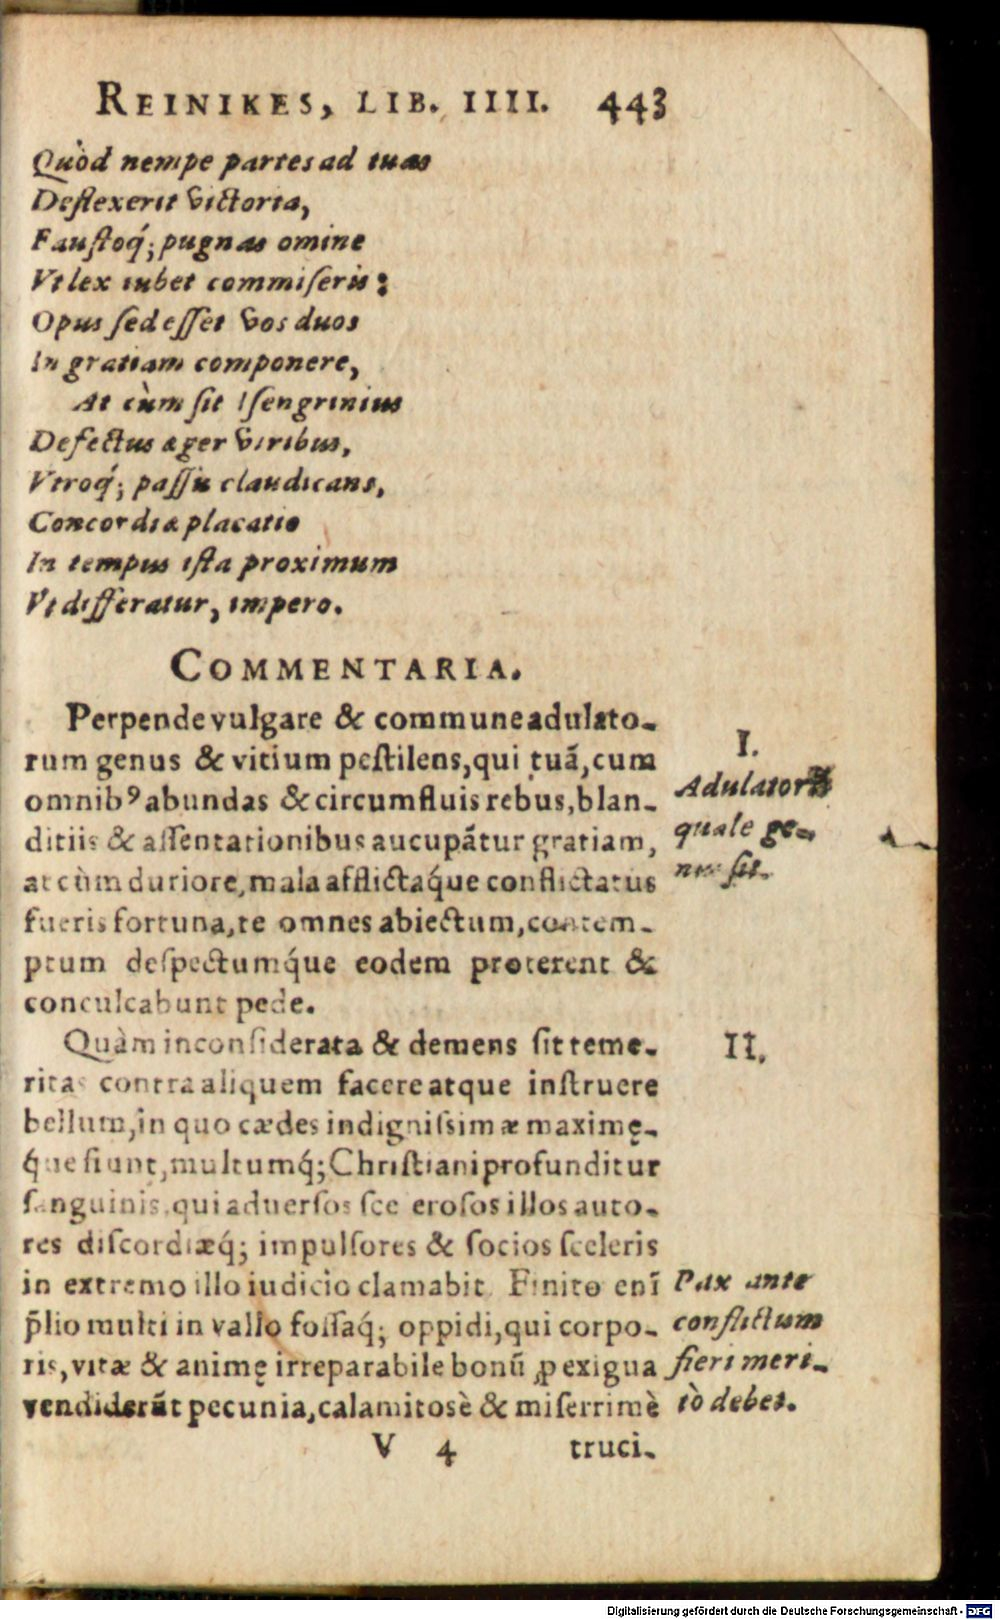 REINIKES, LIB. IIII. 443
Quòd nempe partes ad tuas
Deflexerit victoria,
Faustoq́; pugnas omine
Vt lex iubet commiseris:
Opus sed esset vos duos
In gratiam componere,
At cùm sit Isengrinius
Defectus æger viribus,
Vtroq́; passu claudicans,
Concordiæ placatio
In tempus ista proximum
Vt differatur, impero.
COMMENTARIA.
Perpende vulgare & commune adulato-
rum genus & vitium pestilens, qui tuã, cum
omnibꝰ abundas & circumfluis rebus, blan-
ditiis & assentationibus aucupãtur gratiam,
at cùm duriore, mala afflictaq́ue conflictatus
fueris fortuna, te omnes abiectum, contem-
ptum despectumq́ue eodem proterent &
conculcabunt pede.
I.
Adulatorũ
quale ge-
nus sit.
Quàm inconsiderata & demens sit teme-
ritas contra aliquem facere atque instruere
bellum, in quo cædes indignissimæ maximę-
q́ue fiunt, multumq́; Christiani profunditur
sanguinis, qui aduersos sce erosos illos auto-
res discordiæq́; impulsores & socios sceleris
in extremo illo iudicio clamabit. Finito enĩ
p̃lio multi in vallo fossaq́; oppidi, qui corpo-
ris, vitæ & animę irreparabile bonũ ꝓ exigua
vendiderãt pecunia, calamitosè & miserrimè
II.
Pax ante
conflictum
fieri meri-
tò debet.
V 4 truci-
Digitalisierung gefördert durch die Deutsche Forschungsgemeinschaft - DFG